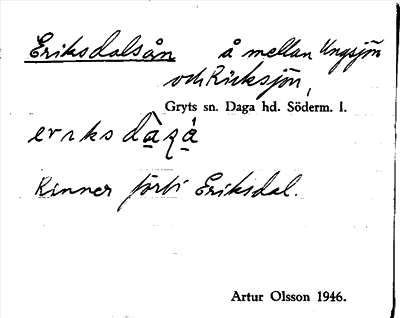 Eriksdalsån å mellan Ungsjön
och Ricksjön,
Gryts sn. Daga hd. Söderm. l.
Rinner förbi Eriksdal.
Artur Olsson 1946.